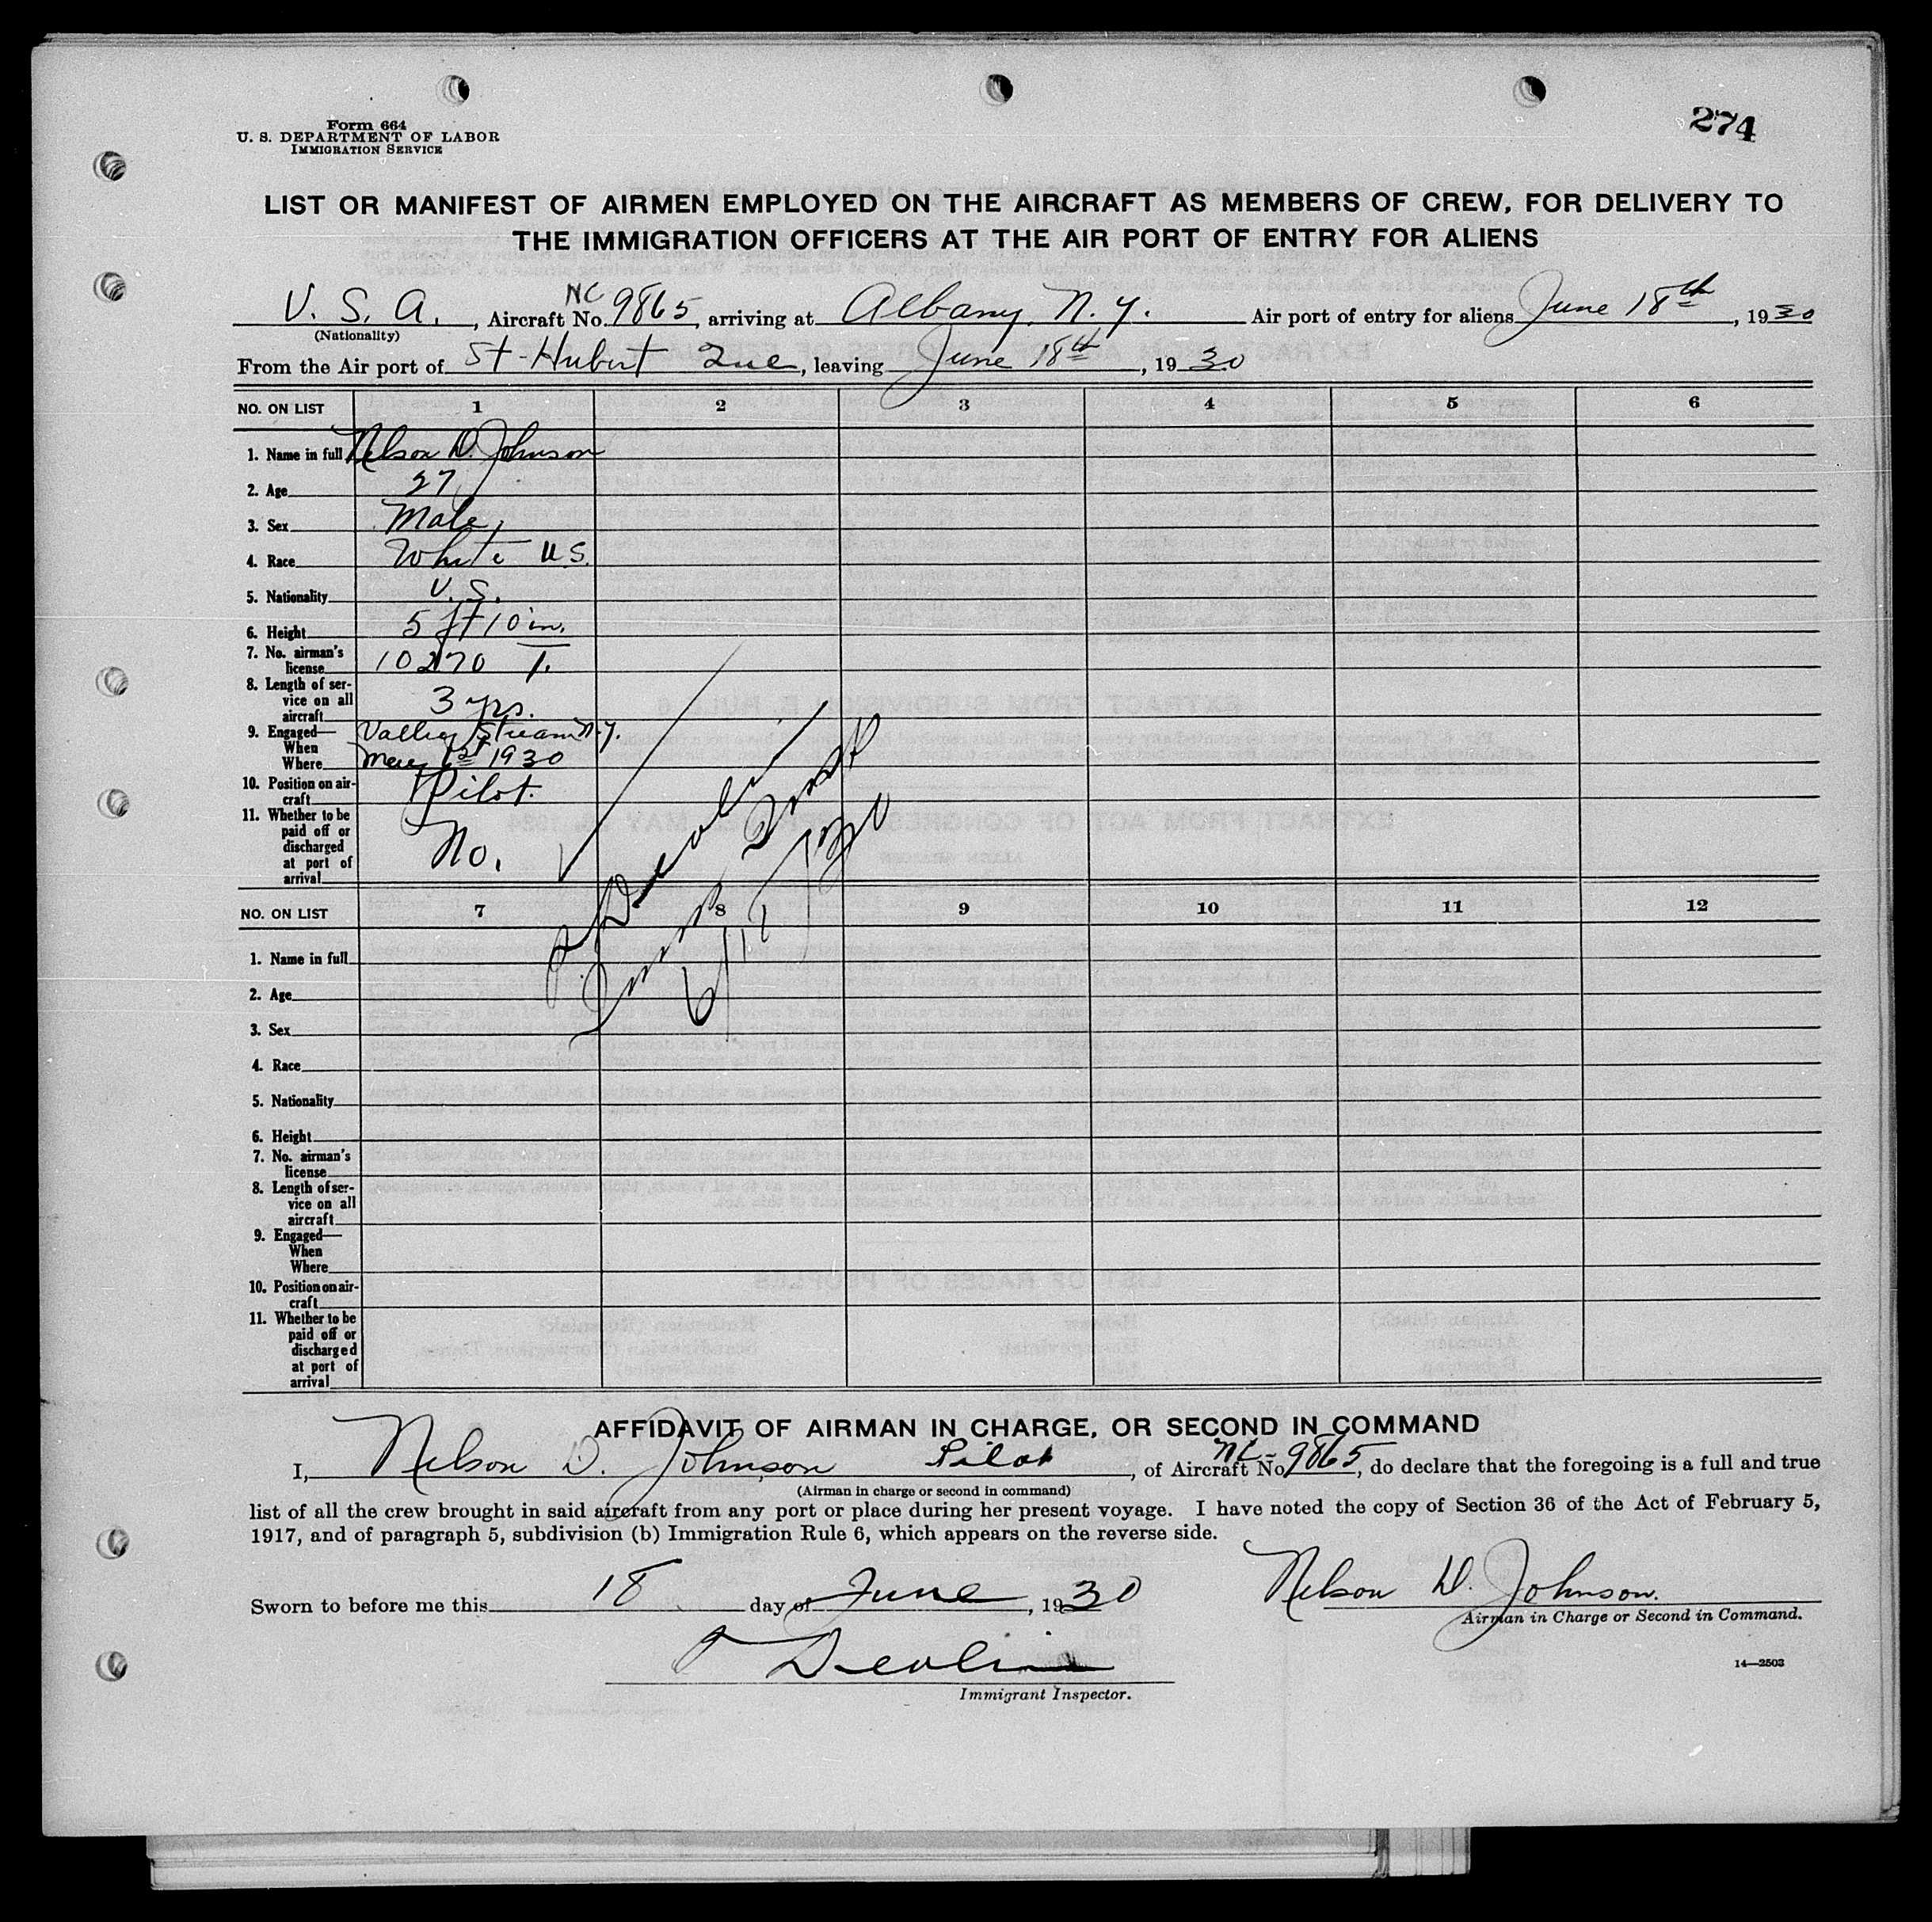 274
Form 664
U. S. DEPARTMENT OF LABOR
IMMIGRATION SERVICE
LIST OR MANIFEST OF AIRMEN EMPLOYED ON THE AIRCRAFT AS MEMBERS OF CREW, FOR DELIVERY TO
THE IMMIGRATION OFFICERS AT THE AIR PORT OF ENTRY FOR ALIENS
U. S. A., Aircraft No. NC 9865, arriving at Albany, N. Y. Air port of entry for aliens June 18th, 1930
(Nationality)
From the Air port of St-Hubert Que, leaving June 18th, 1930
NO. ON LIST 1 2 3 4 5 6
1. Name in full Nelson D. Johnson
2. Age 27
3. Sex Male
4. Race White U.S.
5. Nationality U.S.
6. Height 5 ft 10 in.
7. No. airman's
license 10270 T.
8. Length of ser-
vice on all
aircraft 3 yrs.
9. Engaged— Valley Stream N.Y.
When
Where May 1st 1930
10. Position on air-
craft Pilot.
11. Whether to be
paid off or
discharged
at port of
arrival No.
Devlin
6/18/1930
NO. ON LIST 7 8 9 10 11 12
1. Name in full
2. Age
3. Sex
4. Race
5. Nationality
6. Height
7. No. airman's
license
8. Length of ser-
vice on all
aircraft
9. Engaged—
When
Where
10. Position on air-
craft
11. Whether to be
paid off or
discharged
at port of
arrival
AFFIDAVIT OF AIRMAN IN CHARGE, OR SECOND IN COMMAND
I, Nelson D. Johnson Pilot, of Aircraft No. NC-9865, do declare that the foregoing is a full and true
(Airman in charge or second in command)
list of all the crew brought in said aircraft from any port or place during her present voyage. I have noted the copy of Section 36 of the Act of February 5,
1917, and of paragraph 5, subdivision (b) Immigration Rule 6, which appears on the reverse side.
Sworn to before me this 18 day of June, 1930
Nelson D. Johnson.
Airman in Charge or Second in Command.
Devlin
Immigrant Inspector.
14—2503